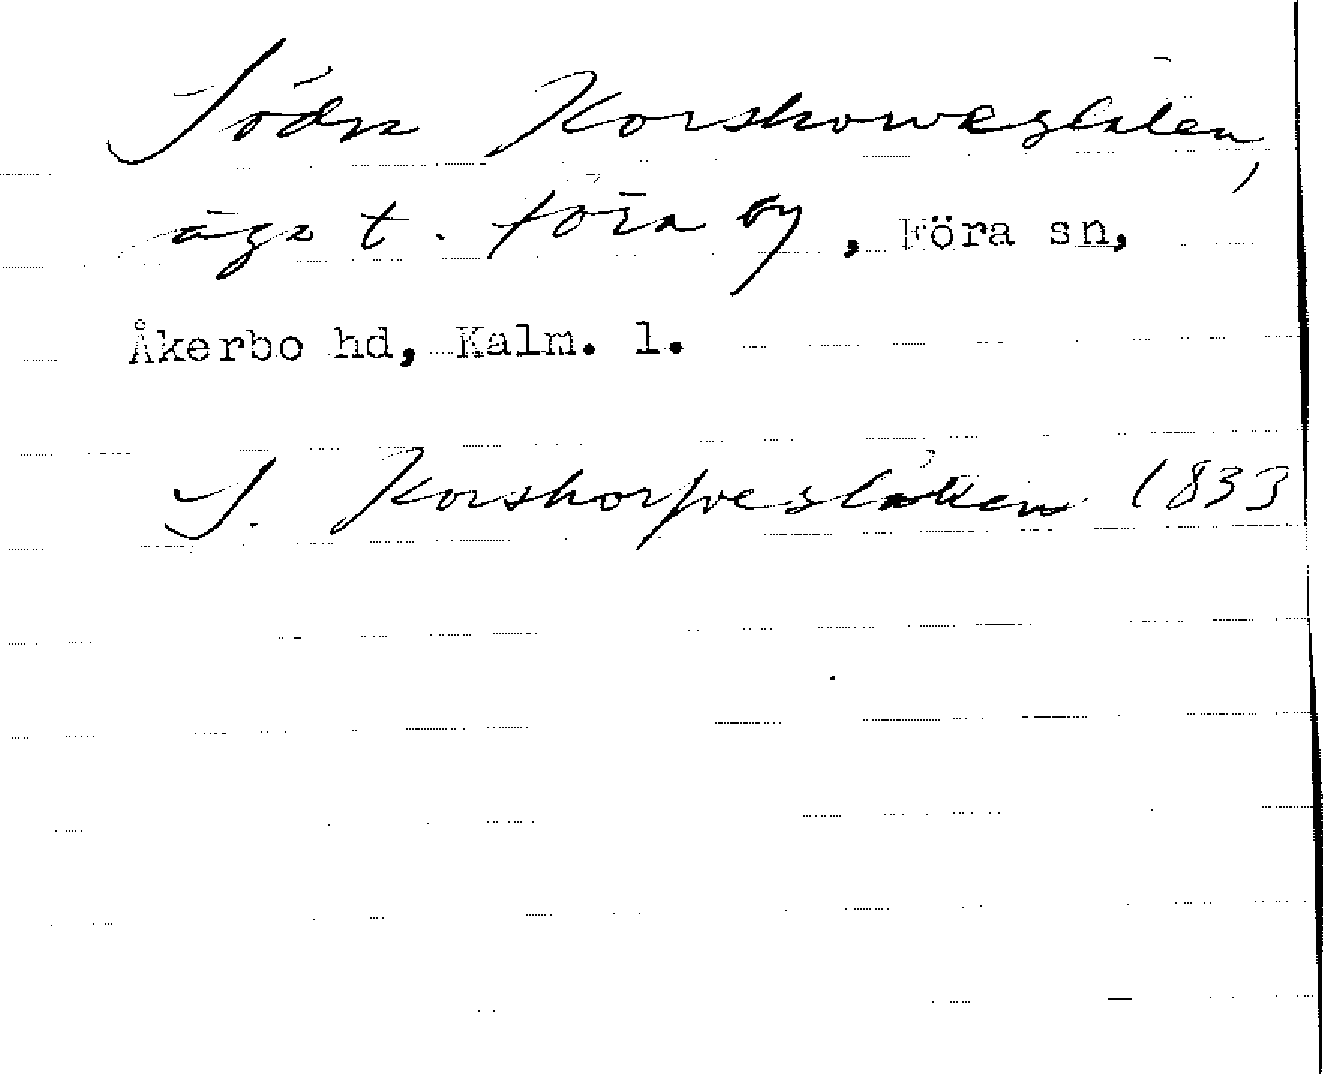 Södra Korskorweslåten,
ägo t. Föra by, Föra sn,
Åkerbo hd, Kalm. l.
S. Korskorfveslåtten 1833